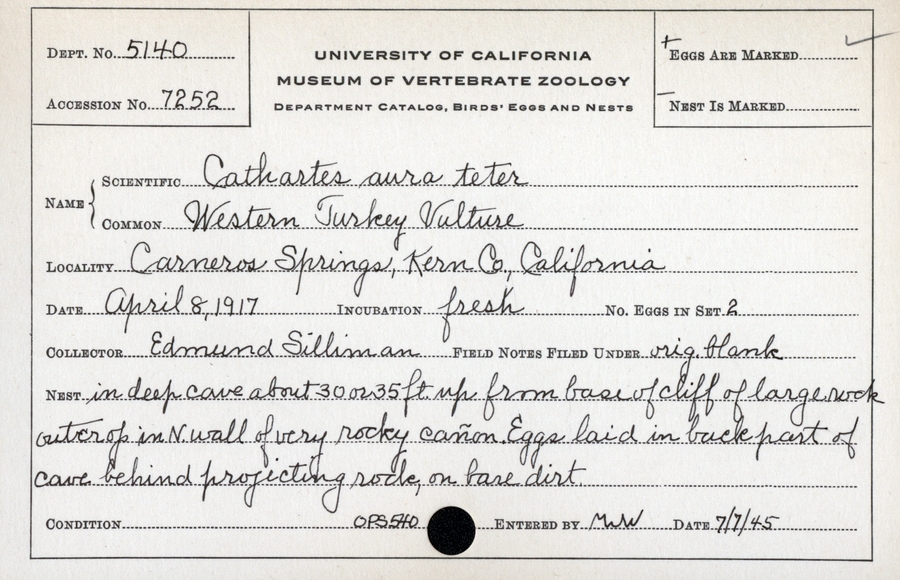 DEPT. No. 5140
ACCESSION No. 7252
UNIVERSITY OF CALIFORNIA
MUSEUM OF VERTEBRATE ZOOLOGY
DEPARTMENT CATALOG, BIRDS' EGGS AND NESTS
+ EGGS ARE MARKED ✓
- NEST IS MARKED
NAME { SCIENTIFIC Cathartes aura teter
COMMON Western Turkey Vulture
LOCALITY Carneros Springs, Kern Co., California
DATE April 8, 1917 INCUBATION fresh No. EGGS IN SET 2
COLLECTOR Edmund Silliman FIELD NOTES FILED UNDER orig. blank
NEST in deep cave about 30 or 35 ft. up from base of cliff of large rock
outcrop in N. wall of very rocky cañon. Eggs laid in back part of
cave behind projecting rock, on bare dirt.
CONDITION OPS540 ENTERED BY MWW DATE 7/7/45